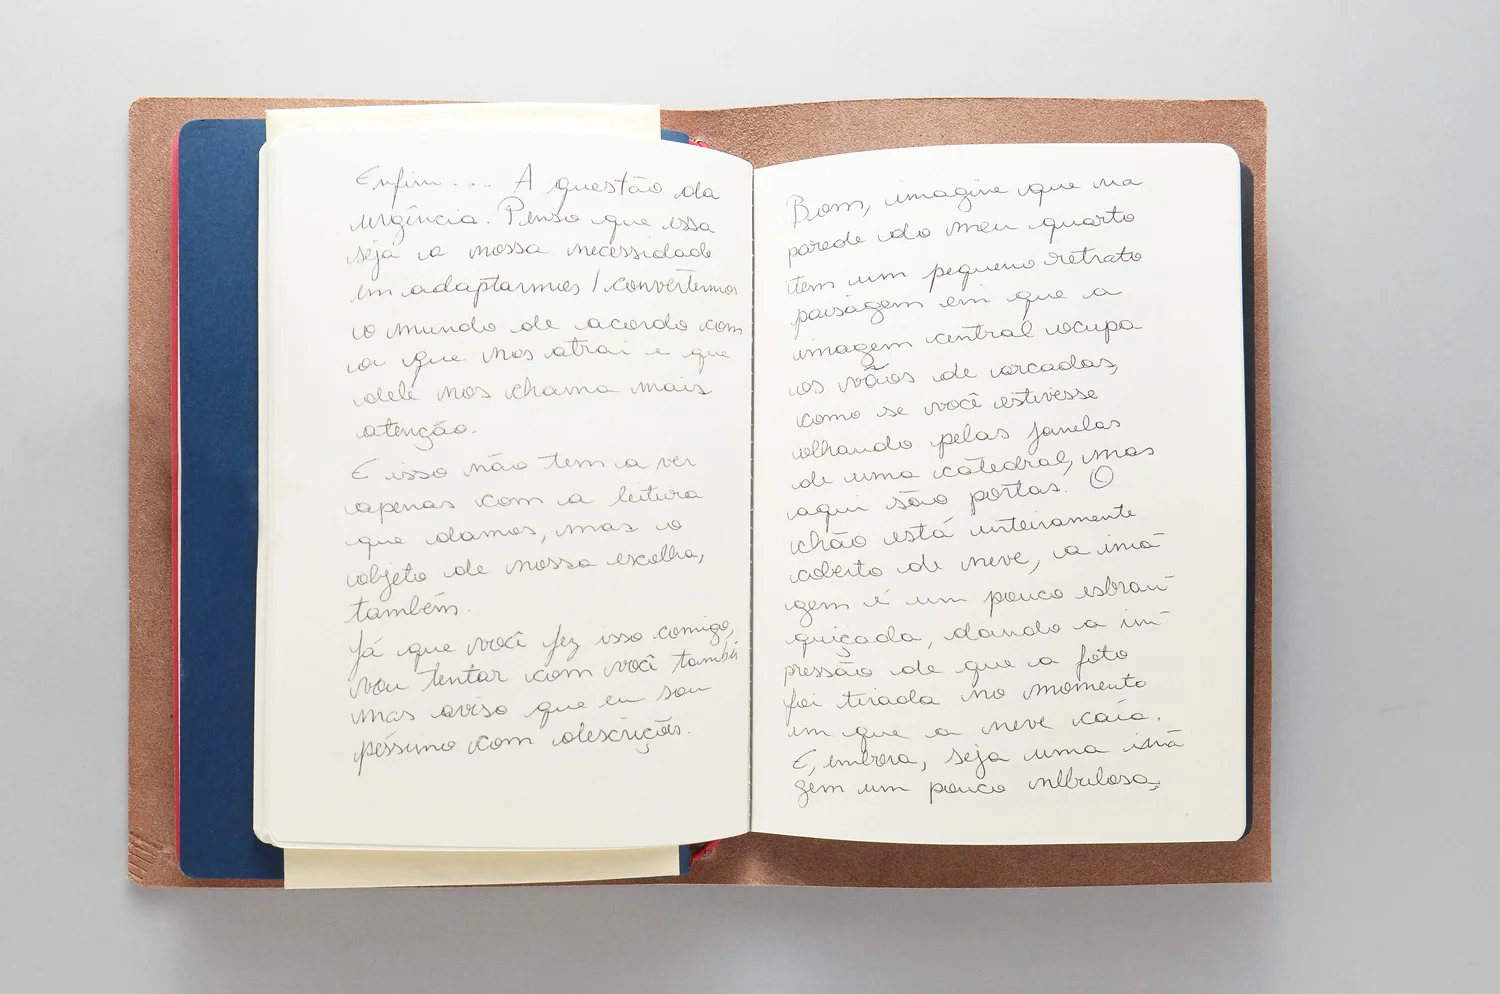 Enfim... A questão da
urgência. Penso que essa
seja a nossa necessidade
em adaptarmos / convertermos
o mundo de acordo com
o que nos atrai e que
dele nos chama mais
atenção.
E isso não tem a ver
apenas com a leitura
que damos, mas o
objeto de nossa escolha,
também.
Já que você fez isso comigo,
vou tentar com você também
mas aviso que eu sou
péssimo com descrições.
Bom, imagine que na
parede do meu quarto
tem um pequeno retrato
paisagem em que a
imagem central ocupa
os vãos de arcadas,
como se você estivesse
olhando pelas janelas
de uma catedral, mas
aqui são portas. O
chão está inteiramente
coberto de neve, a ima-
gem é um pouco esbran-
quiçada, dando a im-
pressão de que a foto
foi tirada no momento
em que a neve caía.
E, embora, seja uma ima-
gem um pouco nebulosa,